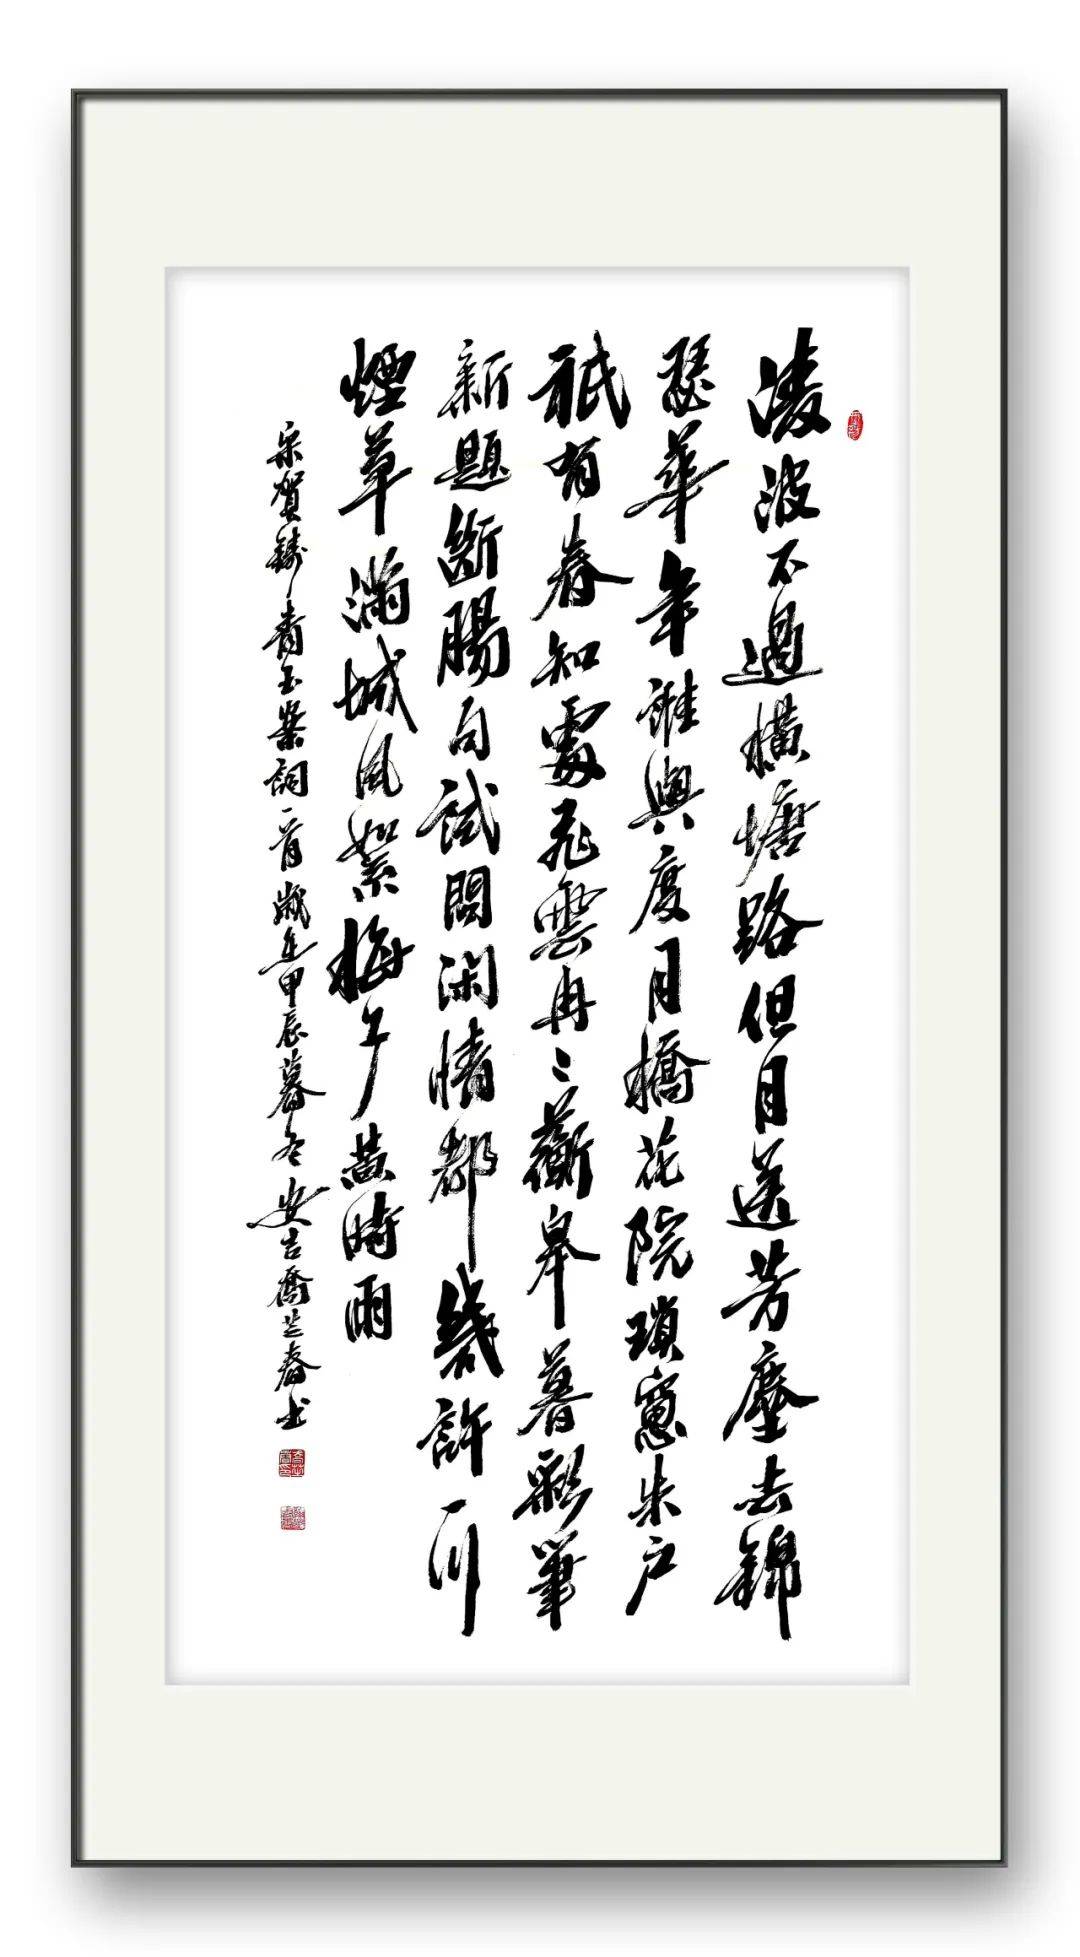 凌波不過橫塘路但目送芳塵去錦
瑟華年誰與度月橋花院瑣窗朱戶
祇有春知處飛雲冉冉蘅皋暮彩筆
新題斷腸句試問閑情都幾許一川
煙草滿城風絮梅子黃時雨
宋賀鑄青玉案詞一首歲在甲辰暮冬安吉喬芝春书